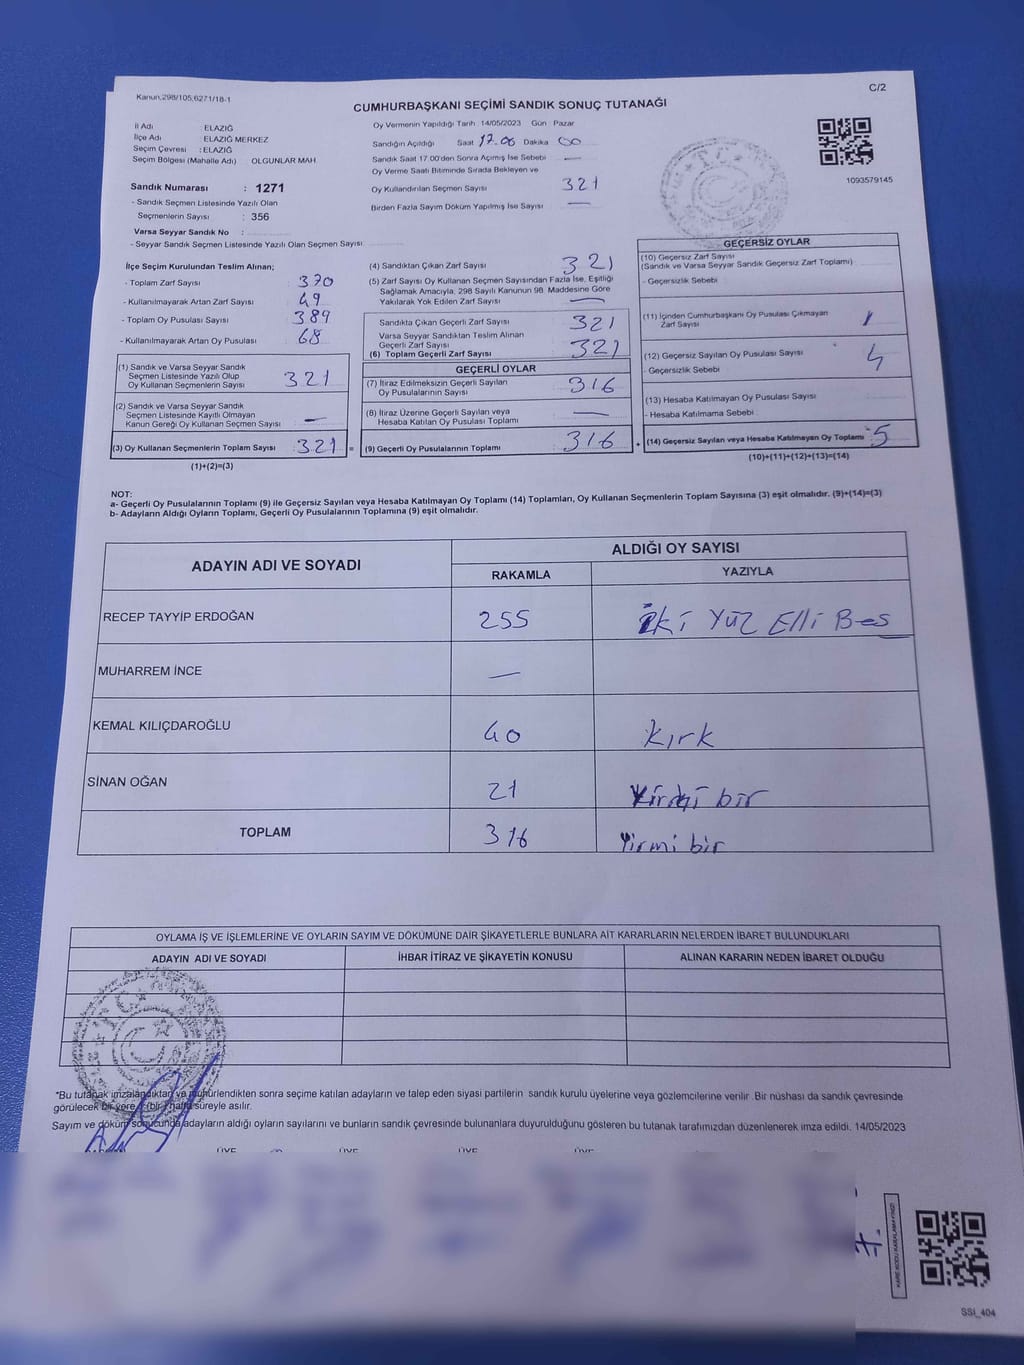 Kanun:298/105;6271/18-1
C/2
CUMHURBAŞKANI SEÇİMİ SANDIK SONUÇ TUTANAĞI
İl Adı : ELAZIĞ
İlçe Adı : ELAZIĞ MERKEZ
Seçim Çevresi : ELAZIĞ
Seçim Bölgesi (Mahalle Adı) : OLGUNLAR MAH.
Sandık Numarası : 1271
- Sandık Seçmen Listesinde Yazılı Olan
Seçmenlerin Sayısı : 356
Varsa Seyyar Sandık No :
- Seyyar Sandık Seçmen Listesinde Yazılı Olan Seçmen Sayısı
Oy Vermenin Yapıldığı Tarih :14/05/2023 Gün Pazar
Sandığın Açıldığı Saat 17.06 Dakika 00
Sandık Saat 17.00'den Sonra Açımış İse Sebebi —
Oy Verme Saati Bitiminde Sırada Bekleyen ve
Oy Kullandırılan Seçmen Sayısı 321
Birden Fazla Sayım Döküm Yapılmış İse Sayısı —
1093579145
İlçe Seçim Kurulundan Teslim Alınan;
- Toplam Zarf Sayısı : 370
- Kullanılmayarak Artan Zarf Sayısı : 49
- Toplam Oy Pusulası Sayısı : 389
- Kullanılmayarak Artan Oy Pusulası : 68
(1) Sandık ve Varsa Seyyar Sandık
Seçmen Listesinde Yazılı Olup
Oy Kullanan Seçmenlerin Sayısı : 321
(2) Sandık ve Varsa Seyyar Sandık
Seçmen Listesinde Kayıtlı Olmayan
Kanun Gereği Oy Kullanan Seçmen Sayısı : —
(3) Oy Kullanan Seçmenlerin Toplam Sayısı : 321 =
(1)+(2)=(3)
(4) Sandıktan Çıkan Zarf Sayısı 321
(5) Zarf Sayısı Oy Kullanan Seçmen Sayısından Fazla İse, Eşitliği
Sağlamak Amacıyla, 298 Sayılı Kanunun 98. Maddesine Göre
Yakılarak Yok Edilen Zarf Sayısı —
Sandıkta Çıkan Geçerli Zarf Sayısı 321
Varsa Seyyar Sandıktan Teslim Alınan
Geçerli Zarf Sayısı
(6) Toplam Geçerli Zarf Sayısı 321
GEÇERLİ OYLAR
(7) İtiraz Edilmeksizin Geçerli Sayılan
Oy Pusulalarının Sayısı 316
(8) İtiraz Üzerine Geçerli Sayılan veya
Hesaba Katılan Oy Pusulası Toplamı —
(9) Geçerli Oy Pusulalarının Toplamı 316 +
GEÇERSİZ OYLAR
(10) Geçersiz Zarf Sayısı
(Sandık ve Varsa Seyyar Sandık Geçersiz Zarf Toplamı)
- Geçersizlik Sebebi
(11) İçinden Cumhurbaşkanı Oy Pusulası Çıkmayan
Zarf Sayısı 1
(12) Geçersiz Sayılan Oy Pusulası Sayısı 4
- Geçersizlik Sebebi
(13) Hesaba Katılmayan Oy Pusulası Sayısı
- Hesaba Katılmama Sebebi
(14) Geçersiz Sayılan veya Hesaba Katılmayan Oy Toplamı : 5
(10)+(11)+(12)+(13)=(14)
NOT:
a- Geçerli Oy Pusulalarının Toplamı (9) ile Geçersiz Sayılan veya Hesaba Katılmayan Oy Toplamı (14) Toplamları, Oy Kullanan Seçmenlerin Toplam Sayısına (3) eşit olmalıdır. (9)+(14)=(3)
b- Adayların Aldığı Oyların Toplamı, Geçerli Oy Pusulalarının Toplamına (9) eşit olmalıdır.
ADAYIN ADI VE SOYADI ALDIĞI OY SAYISI
RAKAMLA YAZIYLA
RECEP TAYYİP ERDOĞAN 255 iki Yüz Elli Bes
MUHARREM İNCE —
KEMAL KILIÇDAROĞLU 40 kırk
SİNAN OĞAN 21 Yirmi bir
TOPLAM 316 Yirmi bir
OYLAMA İŞ VE İŞLEMLERİNE VE OYLARIN SAYIM VE DÖKÜMÜNE DAİR ŞİKAYETLERLE BUNLARA AİT KARARLARIN NELERDEN İBARET BULUNDUKLARI
ADAYIN ADI VE SOYADI İHBAR İTİRAZ VE ŞİKAYETİN KONUSU ALINAN KARARIN NEDEN İBARET OLDUĞU
*Bu tutanak imzalandıktan ve mühürlendikten sonra seçime katılan adayların ve talep eden siyasi partilerin sandık kurulu üyelerine veya gözlemcilerine verilir. Bir nüshası da sandık çevresinde
görülecek bir yere (bir) hafta süreyle asılır.
Sayım ve döküm sonucunda adayların aldığı oyların sayılarını ve bunların sandık çevresinde bulunanlara duyurulduğunu gösteren bu tutanak tarafımızdan düzenlenerek imza edildi. 14/05/2023
ÜYE ÜYE ÜYE ÜYE
SSİ_404